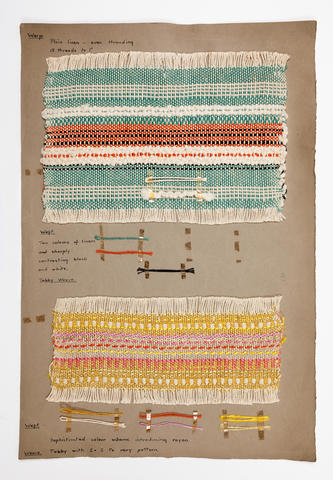 Warp
Plain linen - even threading
15 threads to 1"
Weft
Two colours of linen
and sharply
contrasting black
and white.
Tabby Weave.
Weft
Sophisticated colour scheme introducing rayon.
Weave Tabby with 2 - 2 to vary pattern.